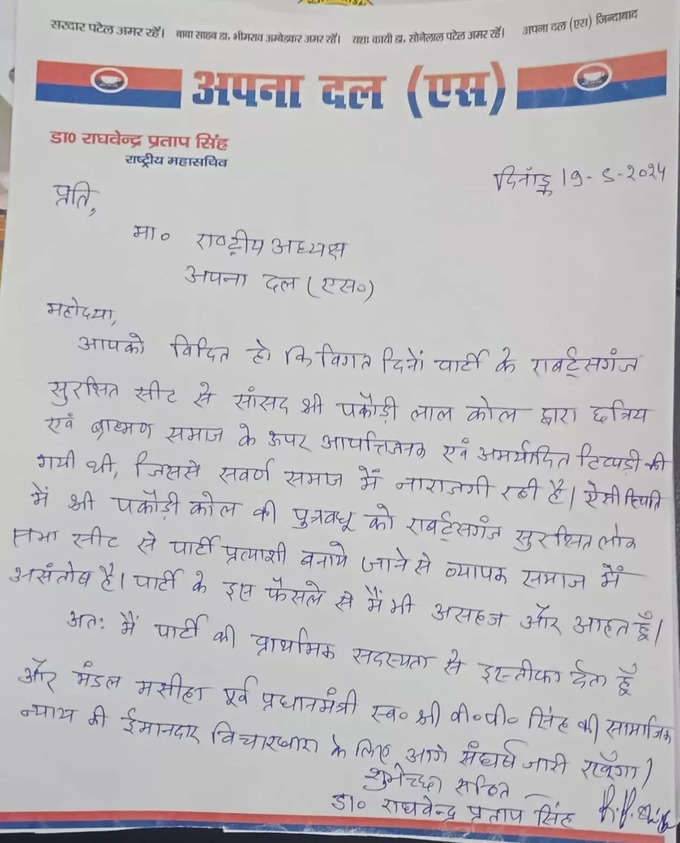 सरदार पटेल अमर रहें। बाबा साहब डा. भीमराव अम्बेडकर अमर रहें। यशः कायी डा. सोनेलाल पटेल अमर रहें। अपना दल (एस) जिन्दाबाद
अपना दल (एस)
डा० राघवेन्द्र प्रताप सिंह
राष्ट्रीय महासचिव
दिनाँङ्क 19-5-2024
प्रति,
मा० राष्ट्रीय अध्यक्ष
अपना दल (एस०)
महोदया,
आपको विदित हो कि विगत दिनों पार्टी के राबर्ट्सगंज
सुरक्षित सीट से सांसद श्री पकौड़ी लाल कोल द्वारा छत्रिय
एवं ब्राह्मण समाज के ऊपर आपत्तिजनक एवं अमर्यादित टिप्पड़ी की
गयी थी, जिससे सवर्ण समाज में नाराजगी रही है। ऐसी स्थिति
में श्री पकौड़ी कोल की पुत्रवधू को राबर्ट्सगंज सुरक्षित लोक
सभा सीट से पार्टी प्रत्याशी बनाये जाने से व्यापक समाज में
असंतोष है। पार्टी के इस फैसले से मैं भी असहज और आहत हूँ।
अतः मैं पार्टी की प्राथमिक सदस्यता से इस्तीफा देता हूँ
और मंडल मसीहा पूर्व प्रधानमंत्री स्व० श्री वी०पी० सिंह की सामाजिक
न्याय की ईमानदार विचारधारा के लिए आगे संघर्ष जारी रखूँगा।
शुभेच्छा सहित
डा० राघवेन्द्र प्रताप सिंह